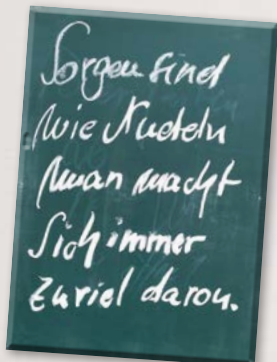 Sorgen sind
Wie Nudeln
Man macht
Sich immer
zuviel davon.